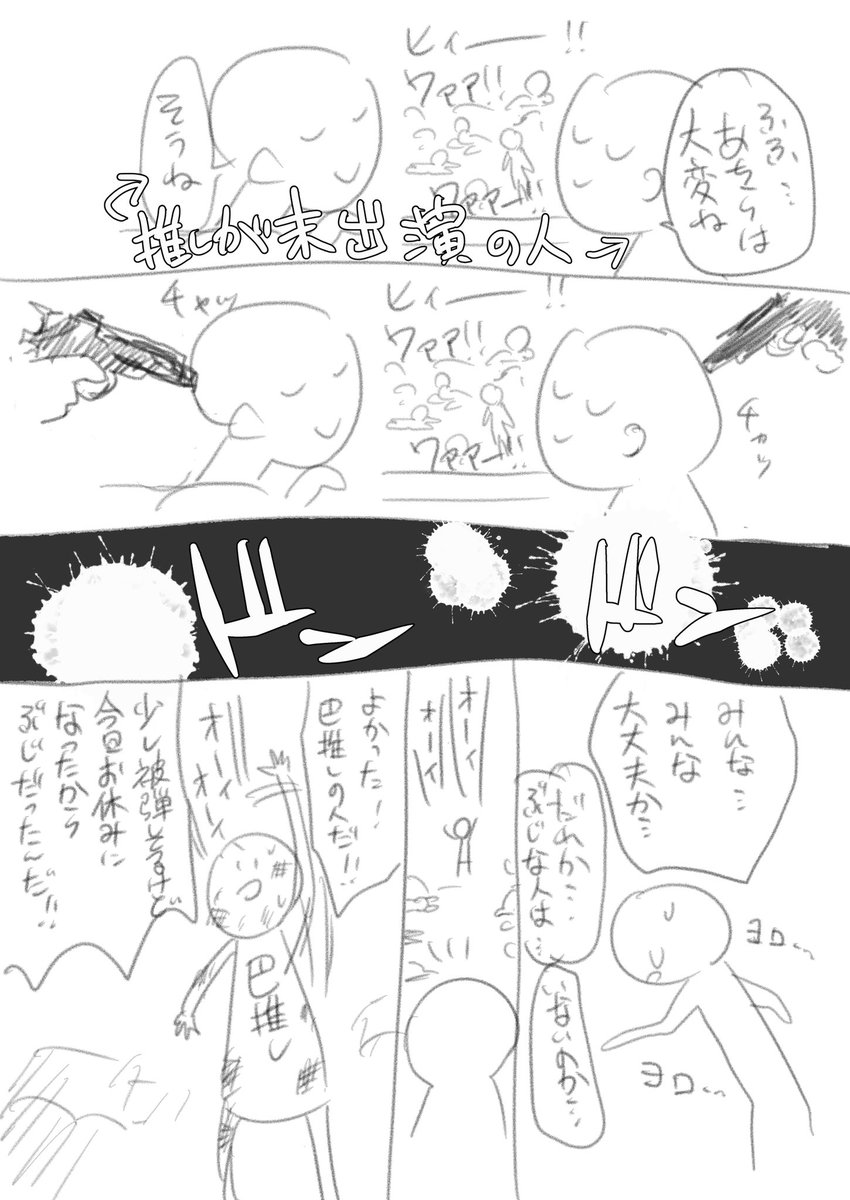 ふふ…
あちらは
大変ね
ヒィー!!
ワァァ!!
ワァァー!!
そうね
推しが末出演の人
ヒィー!!
ワァァ!!
ワァァー!!
チャッ
チャッ
ドン
ドン
みんな…
みんな
大丈夫か…
だれか…
ぶじな人は…
いないのか…
ヨロ…
ヨロ…
オーイ
オーイ
よかった!
巴推しの人だ!!
オーイ
オーイ
巴推し
少し被弾してるけど
今日お休みに
なったから
ぶじだったんだ!!